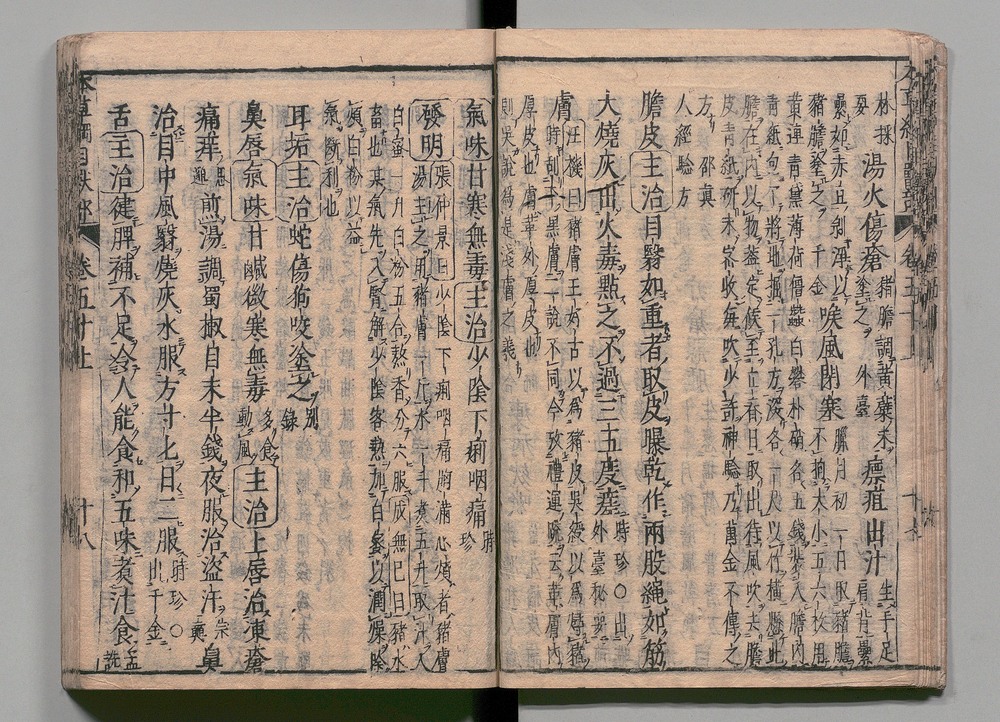 林採
要
湯火傷瘡
豬膽調黃蘗末
塗之外臺
瘭疽出汁
生手足
肩背累
累如赤豆剝淨以
豬膽塗之千金
喉風閉塞
臘月初一日取豬膽
不拘大小五六枚用
黃連青黛薄荷殭蠶白礬朴硝各五錢裝入膽內
青紙包了將地掘一孔方深各一尺以竹橫懸此
膽在內以物蓋定候至立春日取出待風吹去膽
皮青紙研末密收每吹少許神驗乃萬金不傳之
方邵真
人經驗方
膽皮主治目翳如重者取皮曝乾作兩股繩如筯
大燒灰出火毒點之不過三五度瘥
時珍○出
外臺秘要
膚
汪機曰豬膚王好古以為豬皮吳綬以為燖豬
時刮下黑膚二說不同今攷禮運疏云革膚內
厚皮也膚革外厚皮也
則吳說為是淺膚之義
氣味甘寒無毒主治少陰下痢咽痛
時珍
發明
張仲景曰少陰下痢咽痛胸滿心煩者豬膚
湯主之用豬膚一斤水一斗煮五升取汁入
白蜜一升白粉五合熬香分六服成無已曰豬水
畜也其氣先入腎解少陰客熱加白蜜以潤燥除
煩白粉以益
氣斷利也
耳垢主治蛇傷狗咬塗之
別錄
鼻唇氣味甘鹹微寒無毒
多食
動風
主治上唇治凍瘡
痛痒
思邈
煎湯調蜀椒目末半錢夜服治盜汗
宗奭
鼻
治目中風翳燒灰水服方寸匕日二服
時珍○
出千金
舌主治健脾補不足令人能食和五味煮汁食
孟詵
本草綱目獸部 卷五十上 十八